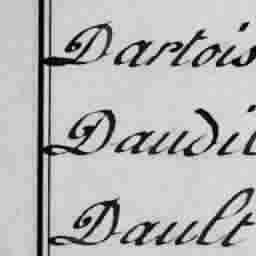 Dartois
Daudi
Dault